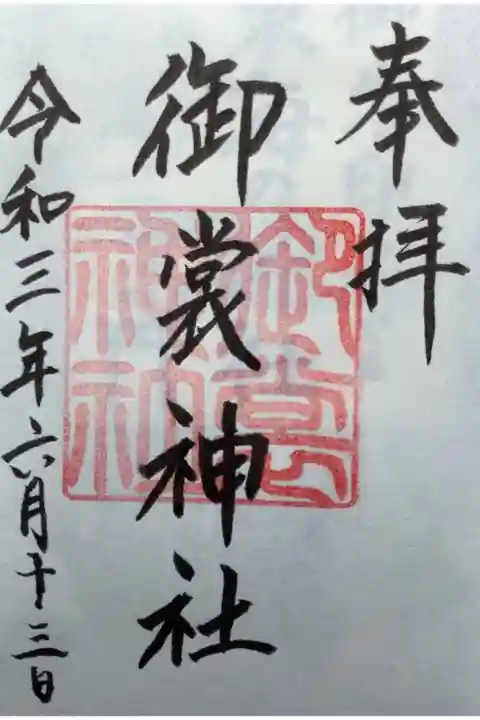 奉拝
御裳神社
令和三年六月十三日
御裳
神社